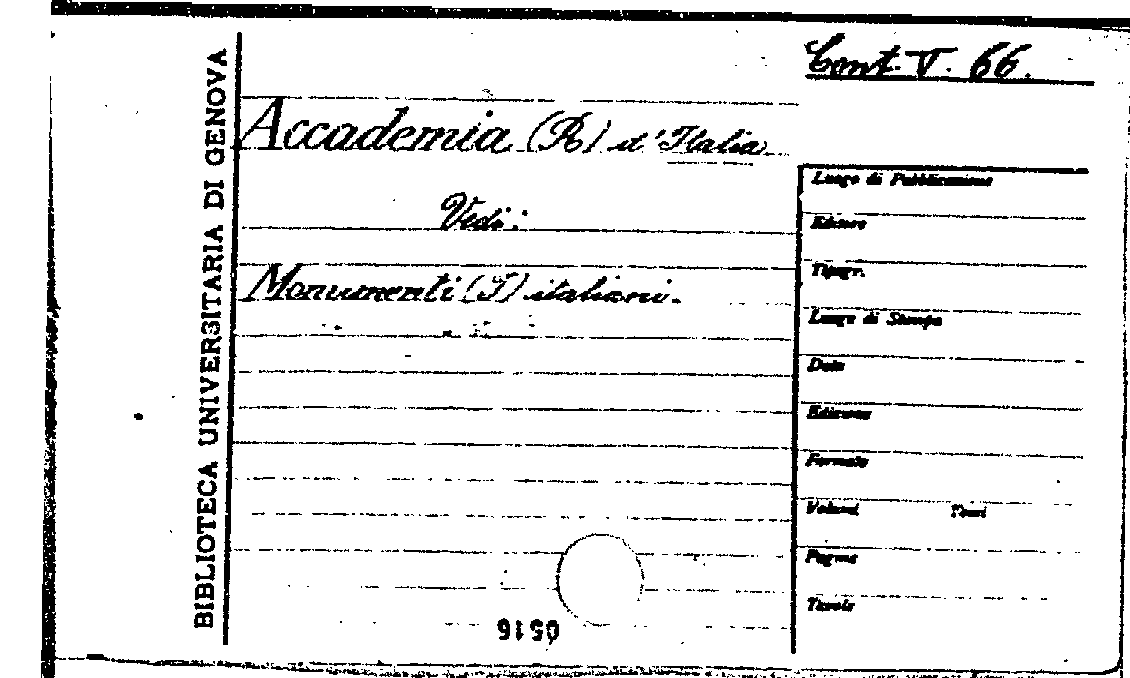 Cont. V. 66.
BIBLIOTECA UNIVERSITARIA DI GENOVA
Accademia (R) d'Italia
Vedi:
Monumenti (I) italiani.
Luogo di Pubblicazione
Editore
Tipogr.
Luogo di Stampa
Data
Edizione
Formato
Volumi Tomi
Pagine
Tavole
0516